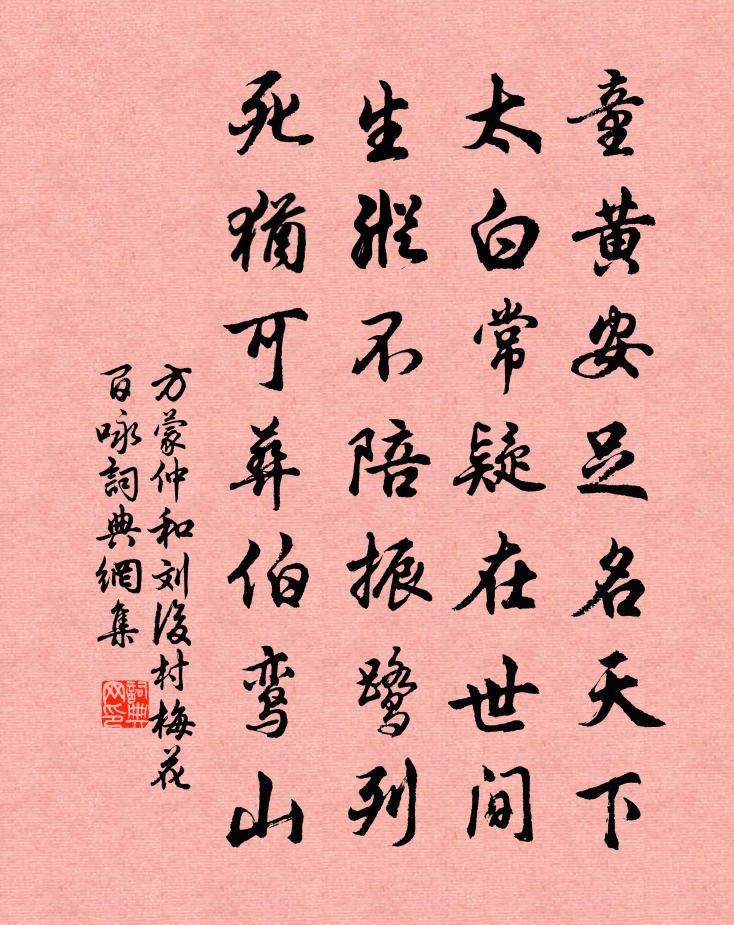 童黄安足名天下
太白常疑在世间
生纵不陪振鹭列
死犹可葬伯鸾山
方蒙仲和刘后村梅花
百咏詞典網集
詞典
网印